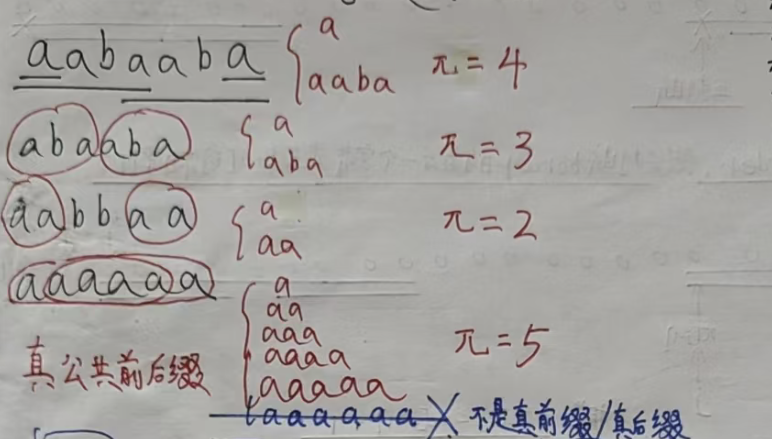 aabaaba { a
aaba π=4
abaaba { a
aba π=3
aabbaa { a
aa π=2
aaaaaa { a
aa
aaa
aaaa π=5
aaaaa
真公共前后缀
aaaaaa × 不是真前缀/真后缀